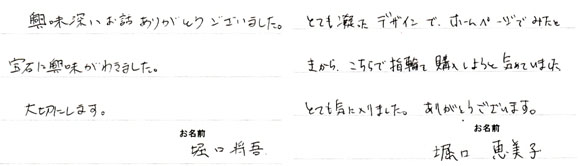 興味深いお話ありがとうございました。
宝石に興味がわきました。
大切にします。
お名前
堀口将吾
とても凝ったデザインで、ホームページでみたと
きから、こちらで指輪を購入しようと決めていました
とても気に入りました。ありがとうございます。
お名前
堀口 恵美子